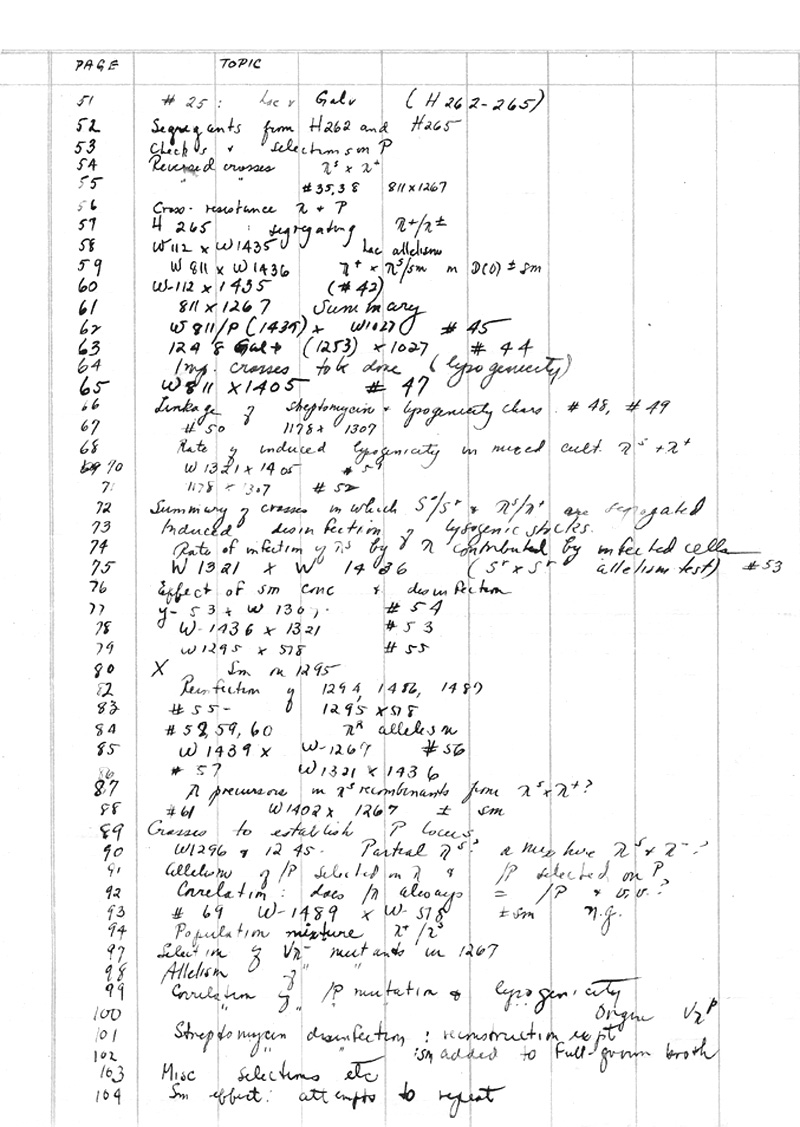 PAGE TOPIC
51 # 25: Lac v Galv (H 262-265)
52 Segregants from H262 and H265
53 Checks & selections on P
54 Reversed crosses λˢ x λ⁺
55 " " #35,38 811x1267
56 Cross-resistance λ + P
57 H 265 : segregating λ⁺/λ±
58 W112 x W1435 Lac allelism
59 W811 x W1436 λ⁺ x λˢ/sm in D(O) ± sm
60 W-112 x 1435 (#42)
61 811 x 1267 Summary
62 W811/P (1439) x W1027 # 45
63 1248 Gal+ (1253) x 1027 # 44
64 Imp. crosses to be done (lysogenicity)
65 W811 x 1405 # 47
66 Linkage of streptomycin & lysogenicity chars. #48, #49
67 # 50 1178 x 1307
68 Rate of induced lysogenicity in mixed cult. λˢ + λ⁺
70 W1321 x 1405 # 59
71 1178 x 1307 # 52
72 Summary of crosses in which Sˢ/Sʳ & λˢ/λ⁺ are segregated
73 Induced disinfection of lysogenic stocks.
74 Rate of infection of λˢ by λ contributed by infected cells
75 W 1321 x W 1436 (Sʳ x Sʳ allelism test) #53
76 Effect of sm conc & disinfection
77 y-53 x W 1307. # 54
78 W-1436 x 1321 # 53
79 W1295 x 578 # 55
80 X Sm on 1295
82 Reinfection of 1294, 1486, 1487
83 # 55- 1295 x 578
84 #58, 59, 60 λᴿ allelism
85 W1439 x W-1267 #56
86 # 57 W1321 x 1436
87 λ precursors in λˢ recombinants from λˢ x λ⁺?
88 #61 W1402 x 1267 ± sm
89 Crosses to establish P locus
90 W1296 & 1245. Partial λˢ? a mixture λˢ & λ⁻?
91 Allelism of /P selected on λ & /P selected on P
92 Correlation: does /λ always = /P & v.v.?
93 # 69 W-1489 x W-578 ± sm n.g.
94 Population mixture λ⁺/λˢ
97 Selection of Vλ⁻ mutants in 1267
98 Allelism of " "
99 Correlation of /P mutation & lysogenicity
100 " " " Origin Vλᴾ
101 Streptomycin disinfection : reconstruction expt
102 " " : sm added to full-grown broth
103 Misc selections etc
104 Sm effect: attempts to repeat